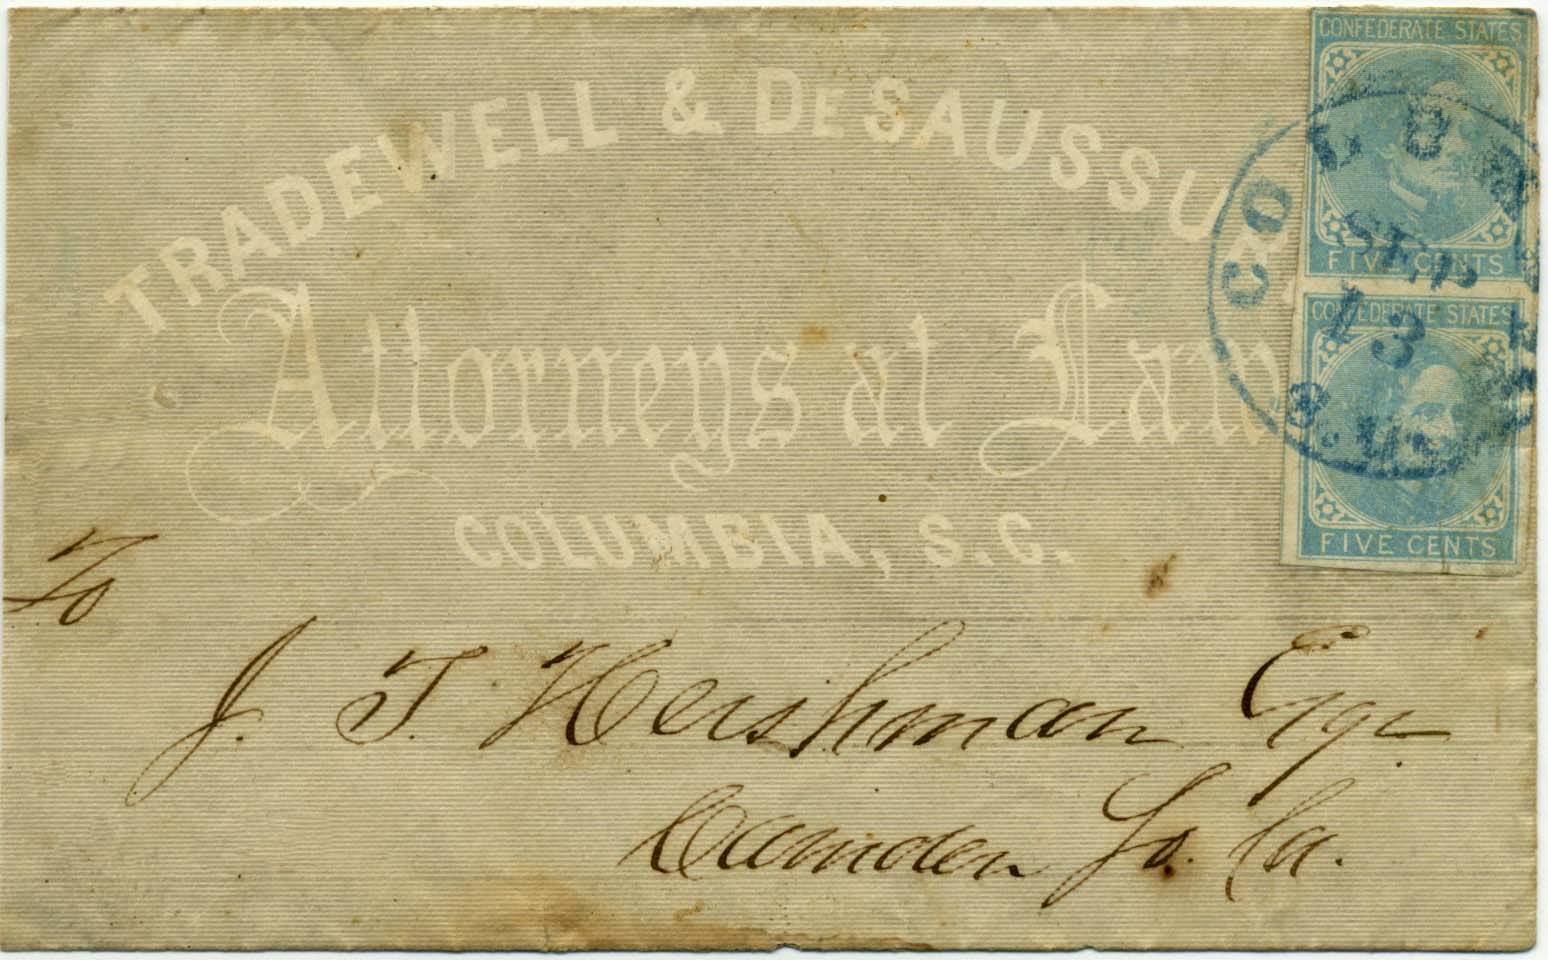 TRADEWELL & DESAUSSU
Attorneys at Law
COLUMBIA, S.C.
CONFEDERATE STATES
FIVE CENTS
CONFEDERATE STATES
FIVE CENTS
COLUMB
SEP
13
To
J. T. Hershman Esqr
Camden So. Ca.